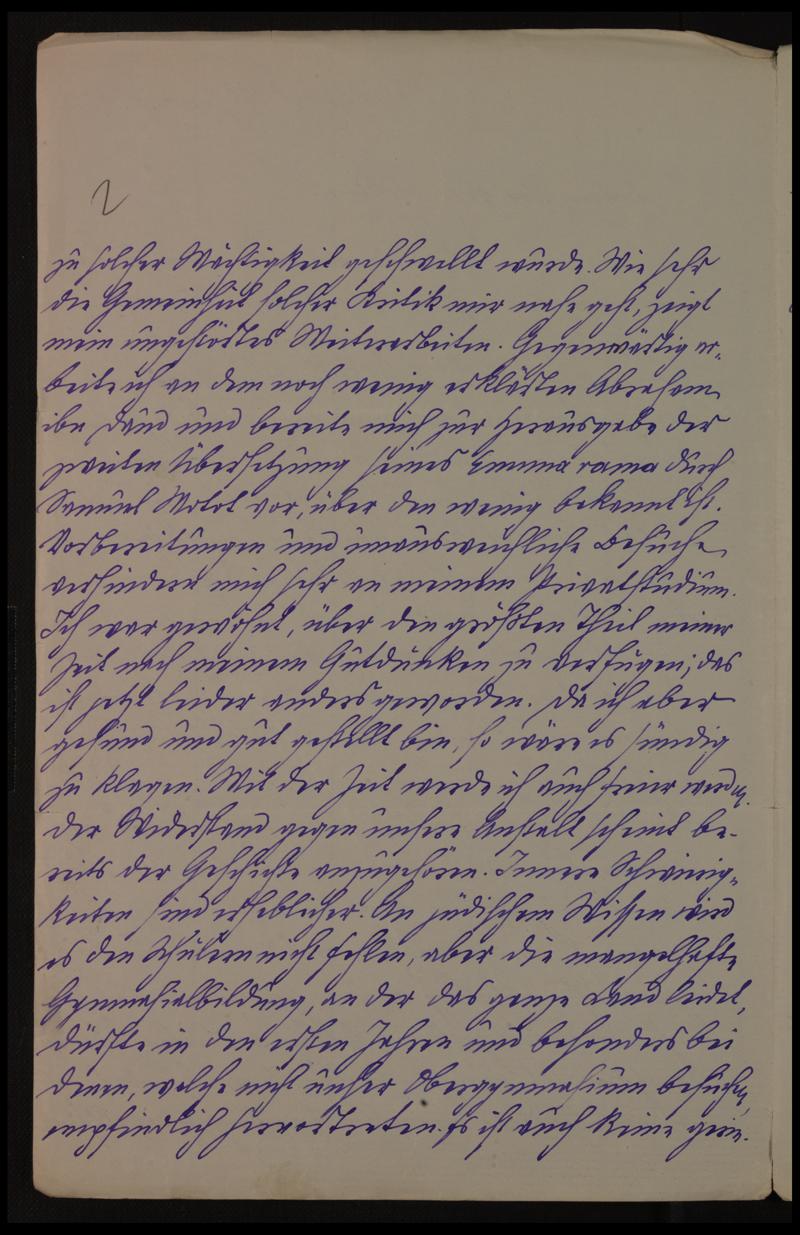 2
zu solcher Mächtigkeit geschwellt wurde. Wie sehr
die Gemeinheit solcher Kritik mir nahe geht, zeigt
mein ungestörtes Weiterarbeiten. Gegenwärtig ar-
beite ich an dem noch wenig erklärten Abraham
ibn Daud und bereite mich zur Herausgabe der
zweiten Übersetzung seines Emuna rama durch
Samuel Motot vor, über den wenig bekannt ist.
Vorbereitungen und unausweichliche Besuche
verhindern mich sehr an meinem Privatstudium.
Ich war gewöhnt, über den größten Theil meiner
Zeit nach meinem Gutdünken zu verfügen; das
ist jetzt leider anders geworden. Da ich aber
gesund und gut gestellt bin, so wäre es sündig
zu klagen. Mit der Zeit werde ich auch freier werden.
Der Widerstand gegen unsere Anstalt scheint be-
reits der Geschichte anzugehören. Innere Schwierig-
keiten sind erheblicher. An jüdischem Wissen wird
es den Schülern nicht fehlen, aber die mangelhafte
Gymnasialbildung, an der das ganze Land leidet,
dürfte in den ersten Jahren und besonders bei
denen, welche nicht unser Obergymnasium besuchen,
empfindlich hervortreten. Es ist auch keine gerin-